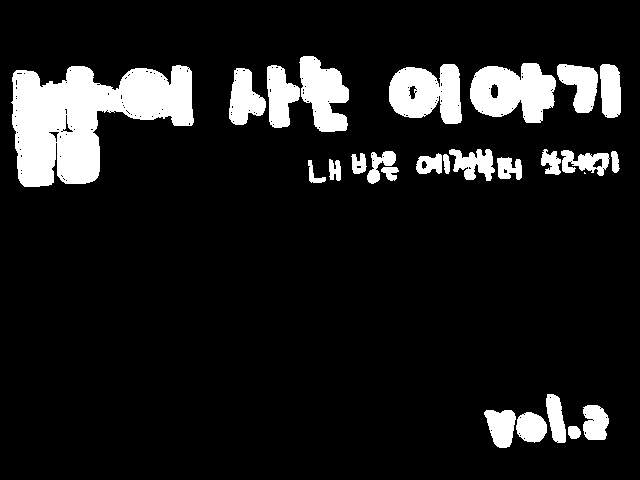 사는 이야기
내 방은 예전부터 쓰레기
vol.2